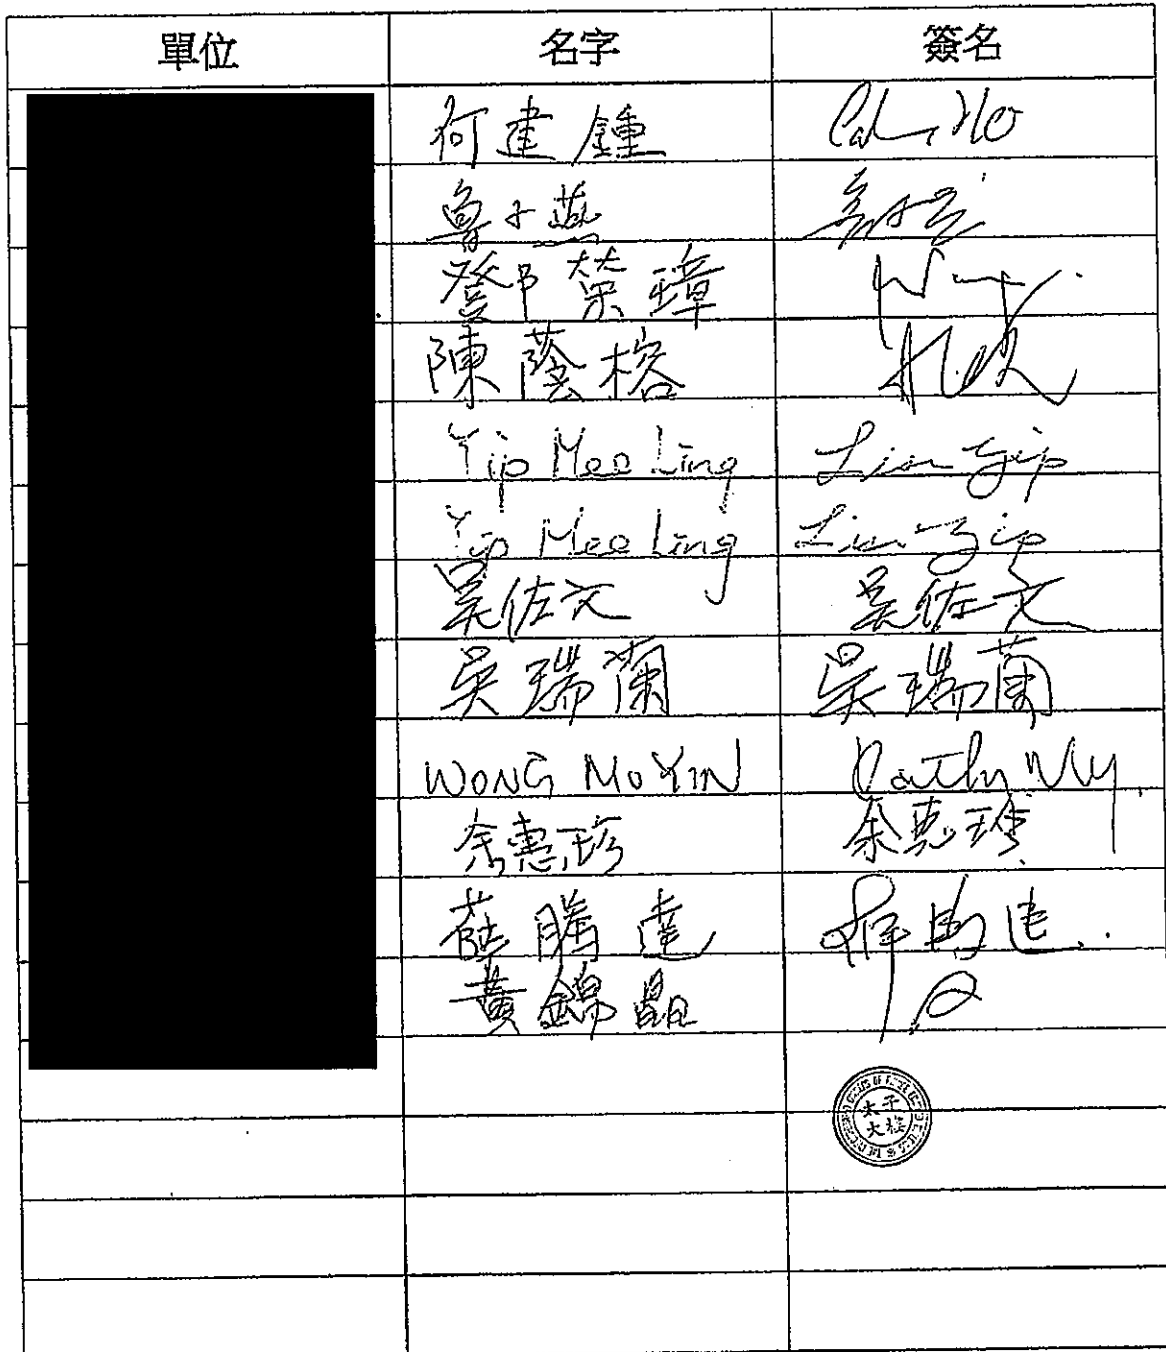 單位 名字 簽名
何建鍾
魯才燕
鄧榮璋
陳蔭榕
Yip Mee Ling Lin Yip
Yip Mee Ling Lin Yip
吳佐文 吳佐文
吳瑞蘭 吳瑞蘭
WONG MO YIN Cathy
余惠珍 余惠珍
薛騰達
黃錦晶
太子
大樓